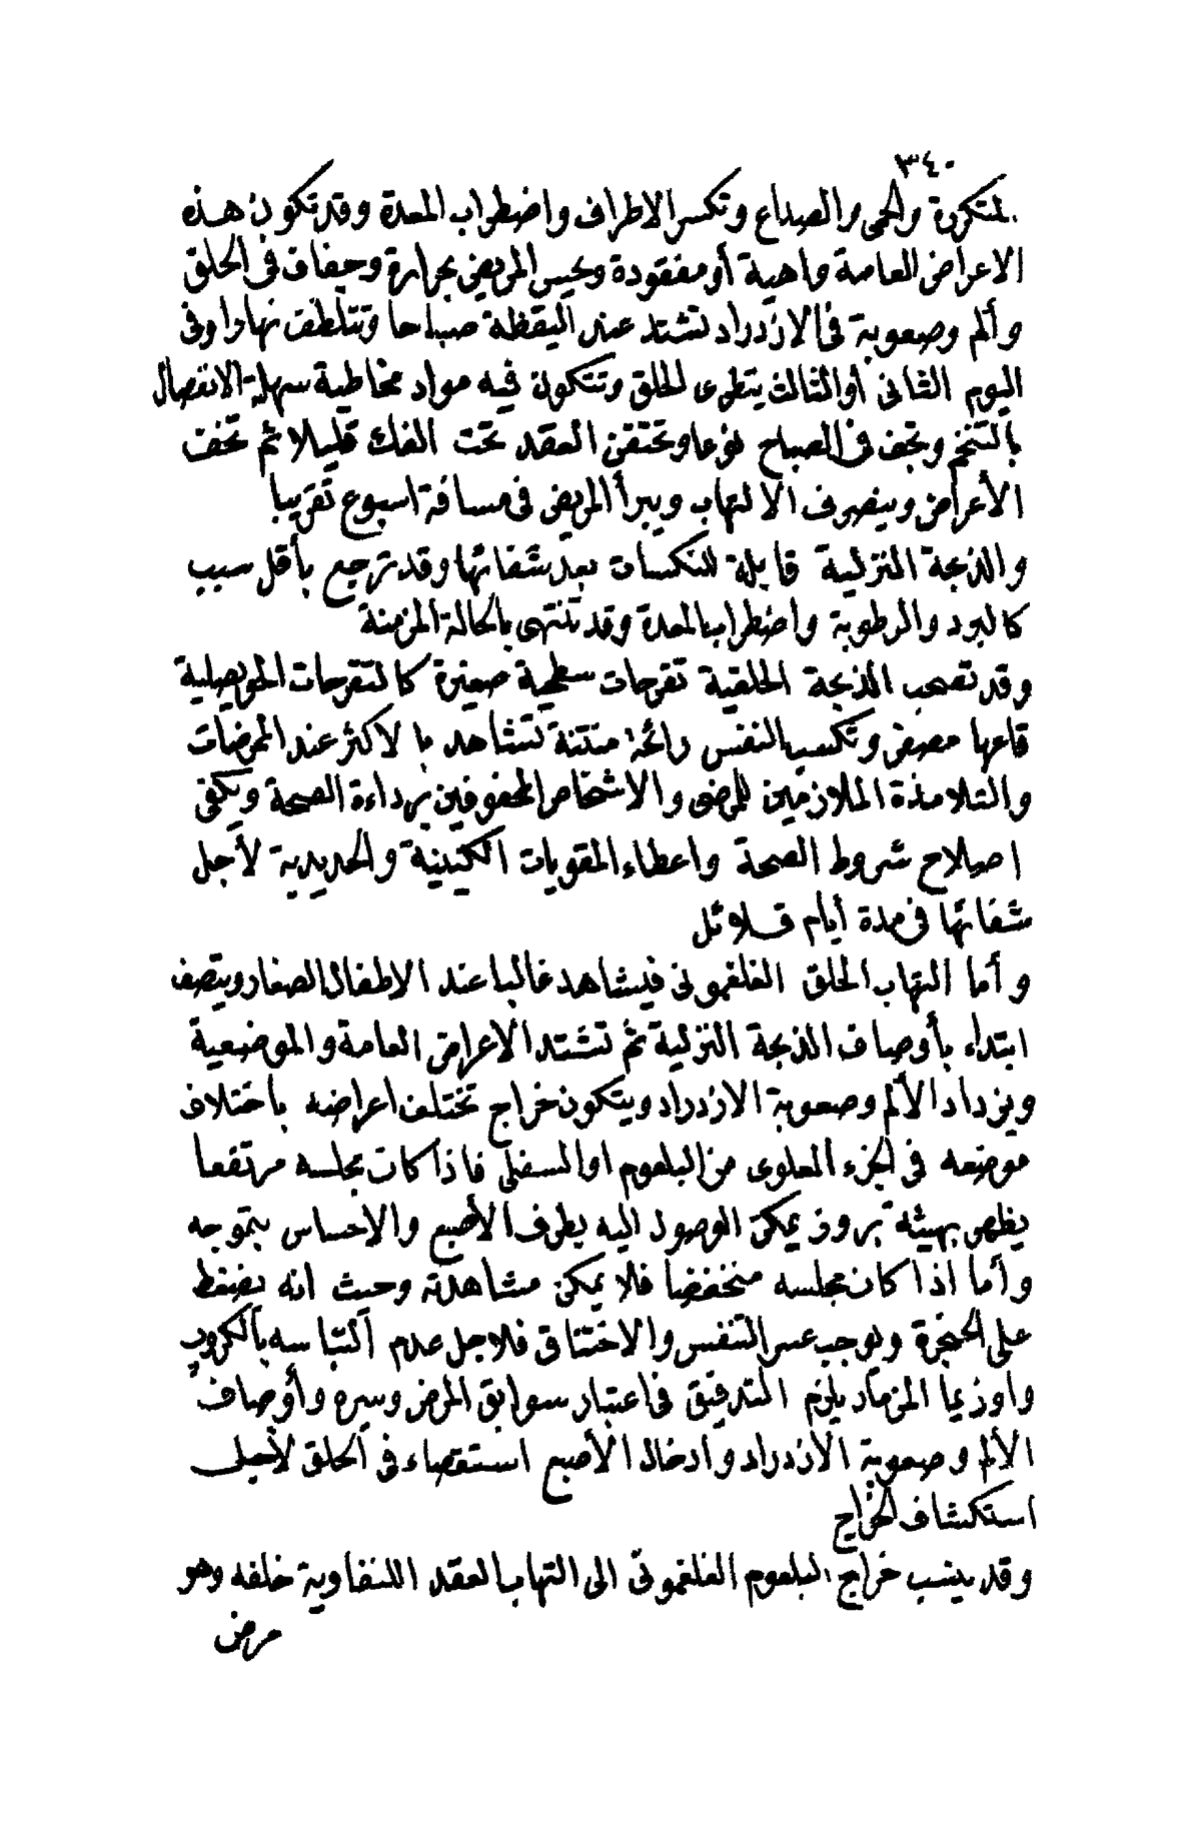 ٣٤٠
المتكررة والحمى والصداع وتكسر الاطراف واضطراب المعدة وقد تكون هذه
الاعراض العامة واهية أو مفقودة ويحس المريض بحرارة وجفاف فى الحلق
وألم وصعوبة فى الازدراد تشتد عند اليقظة صباحا وتتلطف نهارا وفى
اليوم الثانى أو الثالث يتطرى الحلق وتتكون فيه مواد مخاطية سهلة الانفصال
بالتنخم وتجف فى الصباح نوعا وتحتقن العقد تحت الفك قليلا ثم تخف
الأعراض وينصرف الالتهاب ويبرأ المريض فى مسافة اسبوع تقريبا
والذبحة النزلية قابلة للنكسات بعد شفائها وقد ترجع بأقل سبب
كالبرد والرطوبة واضطراب المعدة وقد تنتهى بالحالة المزمنة
وقد تصحب الذبحة الحلقية تقرحات سطحية صغيرة كالتقرحات الحويصلية
قاعها مصفر وتكسب النفس رائحة منتنة تشاهد بالاكثر عند الممرضات
والتلامذة الملازمين للمرضى والاشخاص المحفوفين برداءة الصحة ويكفى
اصلاح شروط الصحة واعطاء المقويات الكينينية والحديدية لأجل
شفائها فى مدة أيام قلائل
وأما التهاب الحلق الفلغمونى فيشاهد غالبا عند الاطفال الصغار ويتصف
ابتداء بأوصاف الذبحة النزلية ثم تشتد الاعراض العامة والموضعية
ويزداد الألم وصعوبة الازدراد ويتكون خراج تختلف اعراضه باختلاف
موضعه فى الجزء العلوى من البلعوم او السفلى فاذا كان مجلسه مرتفعا
يظهر بهيئة بروز يمكن الوصول اليه بطرف الأصبع والاحساس بتموجه
وأما اذا كان مجلسه منخفضا فلا يمكن مشاهدته وحيث انه يضغط
على الحنجرة ويوجب عسر التنفس والاختناق فلاجل عدم التباسه بالكروب
واوذيما المزمار يلزم التدقيق فى اعتبار سوابق المرض وسيره وأوصاف
الألم وصعوبة الازدراد وادخال الأصبع استقصاء فى الحلق لأجل
استكشاف الخراج
وقد ينسب خراج البلعوم الفلغمونى الى التهاب العقد اللنفاوية خلفه وهو
مرض